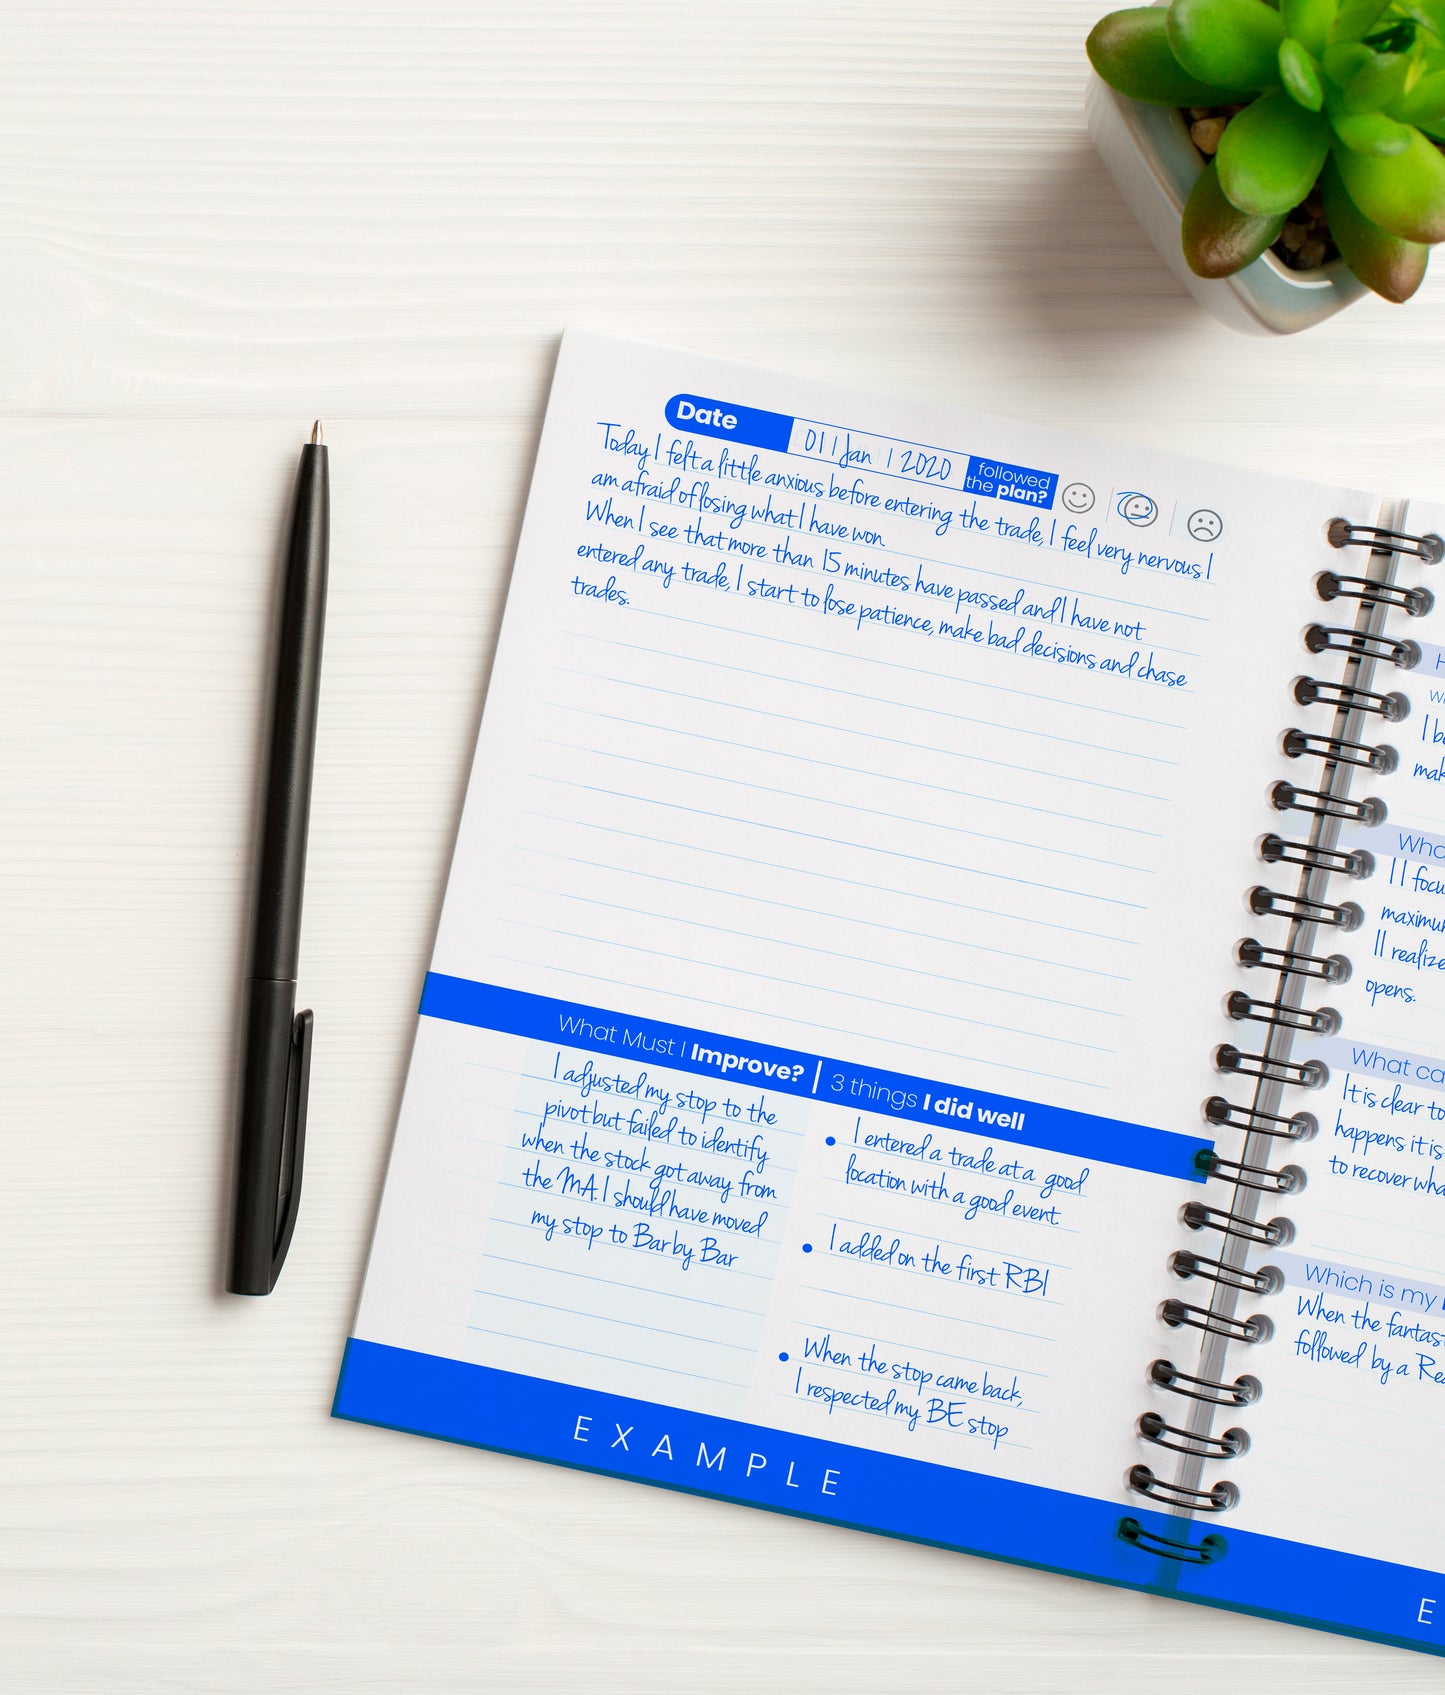 Date 01 | Jan | 2020 followed
the plan?
Today I felt a little anxious before entering the trade, I feel very nervous I
am afraid of losing what I have won.
When I see that more than 15 minutes have passed and I have not
entered any trade, I start to lose patience, make bad decisions and chase
trades.
What Must I Improve? | 3 things I did well
I adjusted my stop to the
pivot but failed to identify
when the stock got away from
the MA. I should have moved
my stop to Bar by Bar
• I entered a trade at a good
location with a good event.
• I added on the first RBI
• When the stop came back,
I respected my BE stop
EXAMPLE
H
I
opens.
What
It is clear to
happens it is
to recover
Which is my
When the
followed by a
E